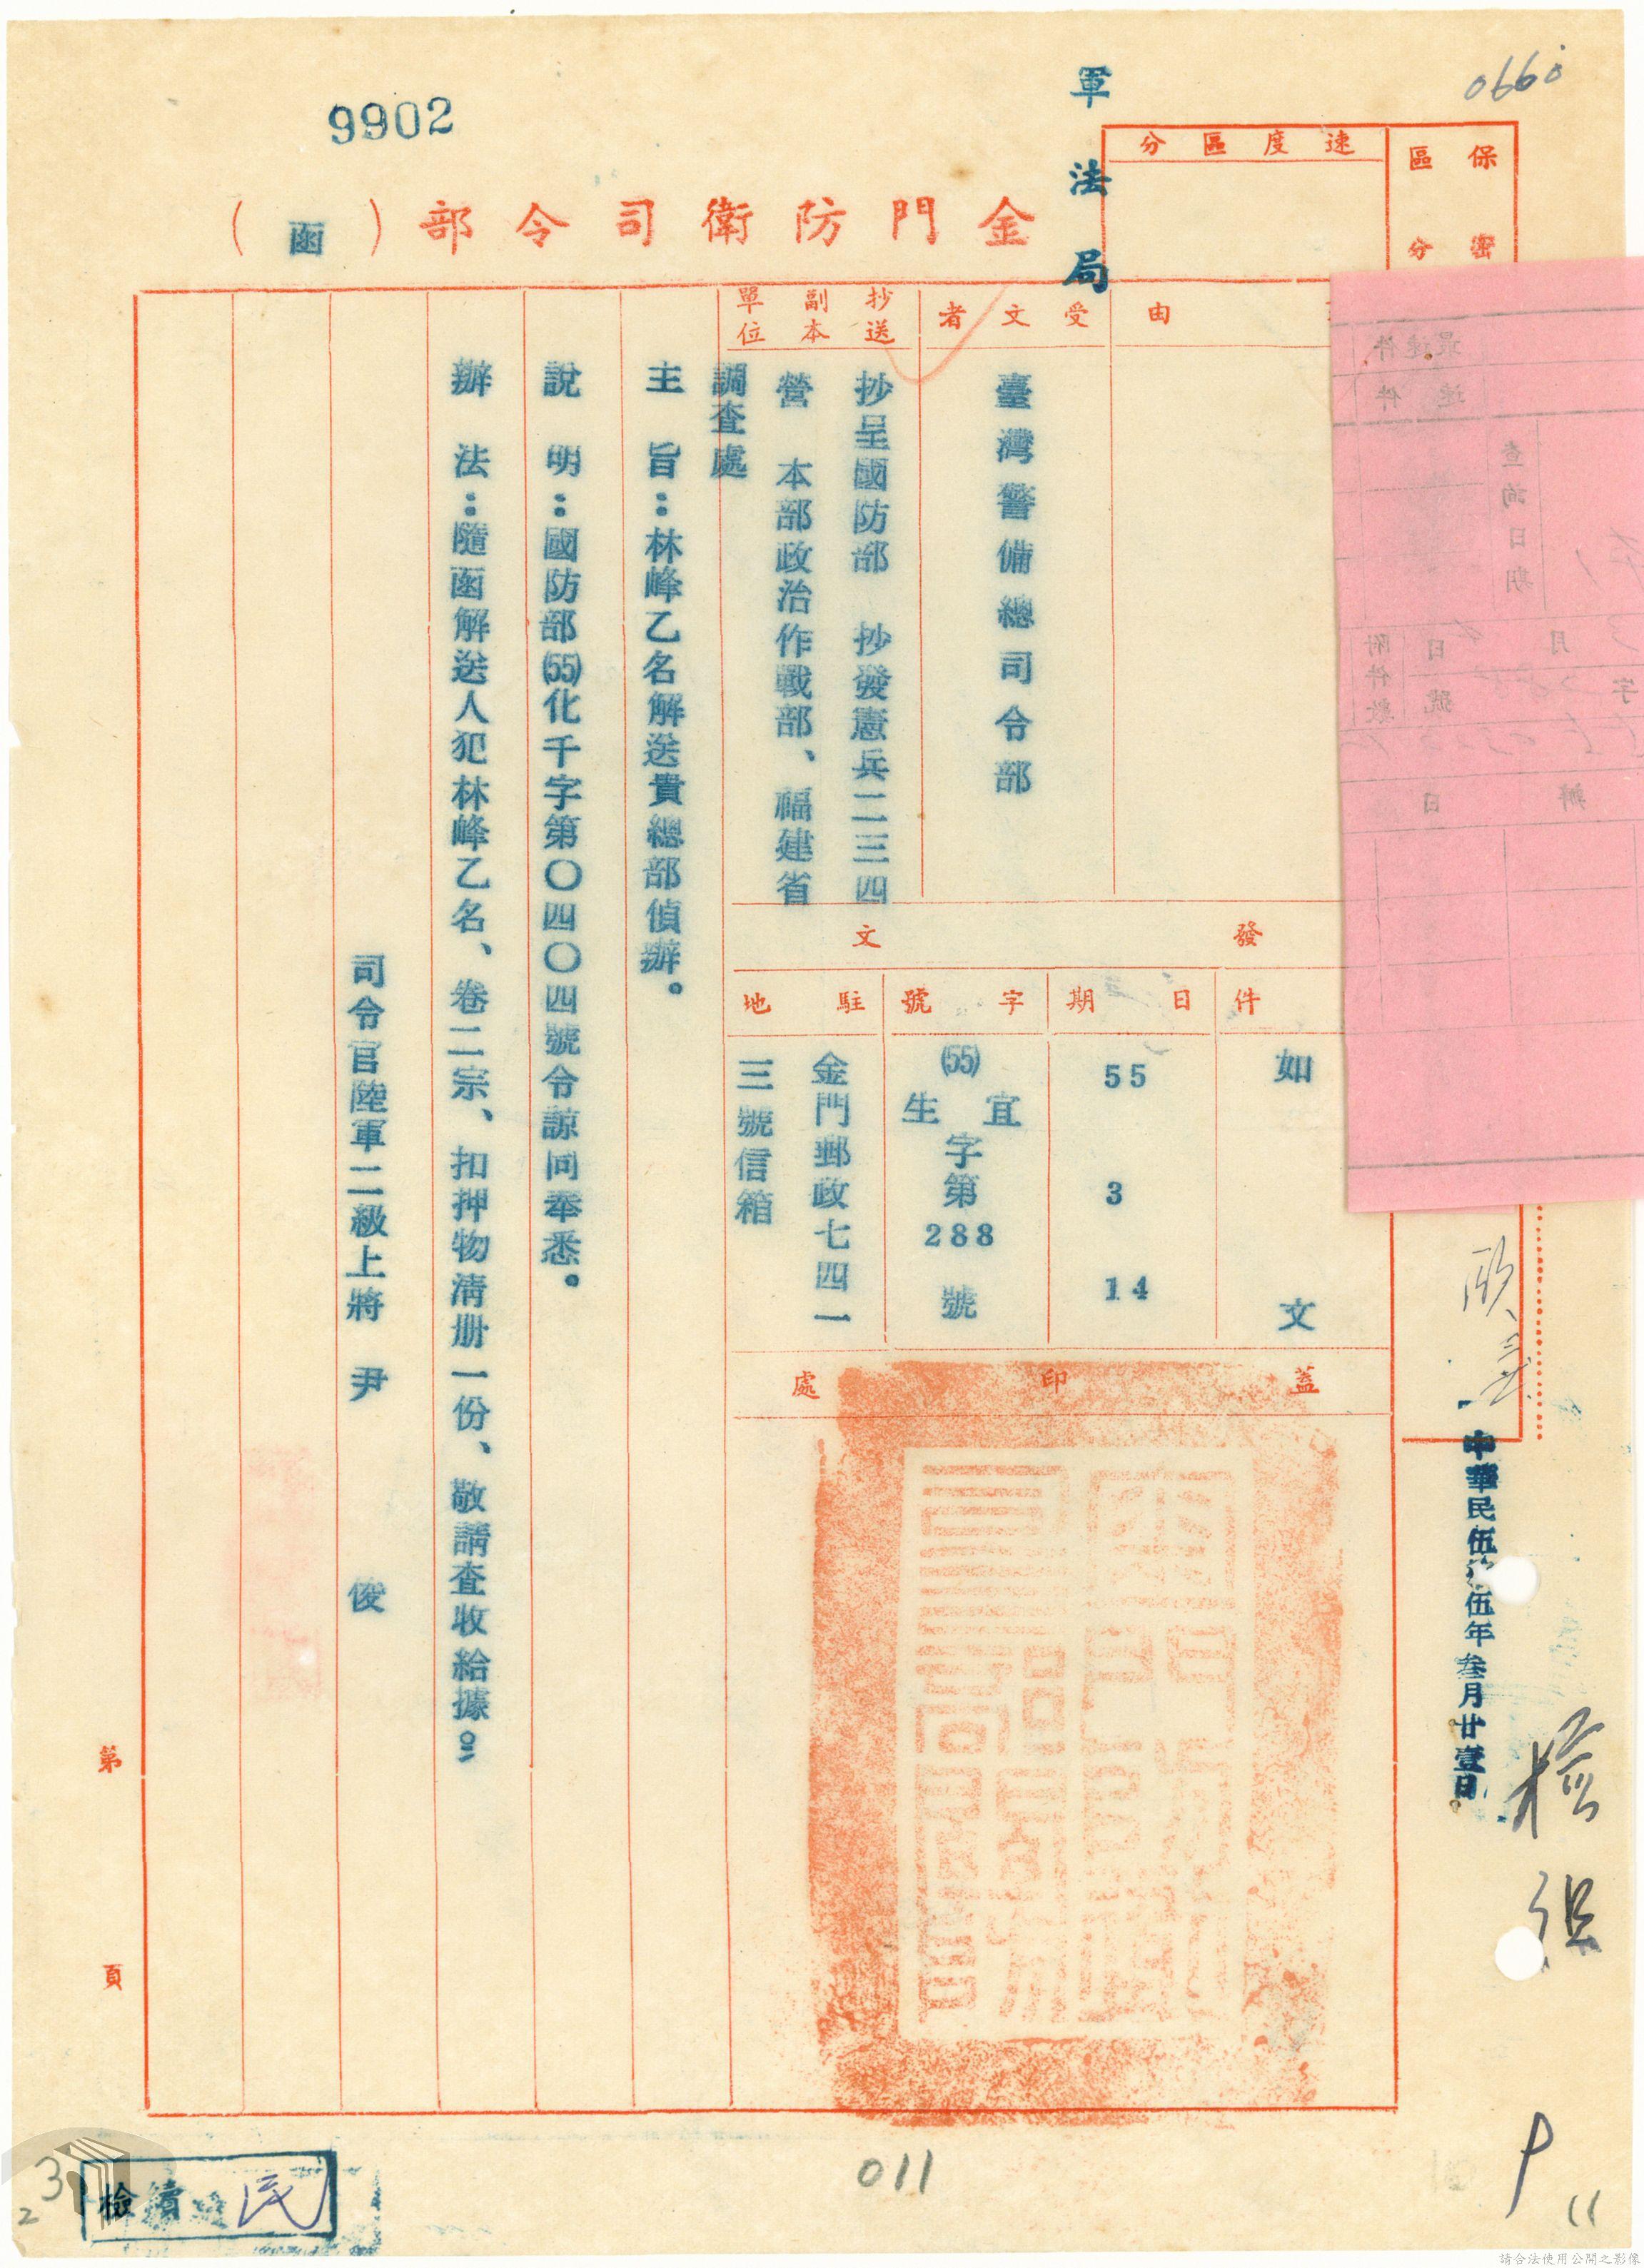 0660
9902
軍法局
速度區分
保密區分
金門防衛司令部（函）
由
受文者
臺灣警備總司令部
抄送副本單位
抄呈國防部　抄發憲兵二三四
營　本部政治作戰部、福建省
調查處
發文
件
如文
日期
55 3 14
字號
(55)宜生字第288號
駐地
金門郵政七四一
三號信箱
蓋印處
主　旨：林峰乙名解送貴總部偵辦。
說　明：國防部(55)化千字第〇四〇四號令諒同奉悉。
辦　法：隨函解送人犯林峰乙名、卷二宗、扣押物清册一份、敬請查收給據。
司令官陸軍二級上將　尹　俊
最速件
速件
查詢日期
月
日
字
號
附件數
辦
日
中華民伍拾伍年叁月廿壹日
第　頁
檢
民
011
P
11
3
2
請合法使用公開之影像